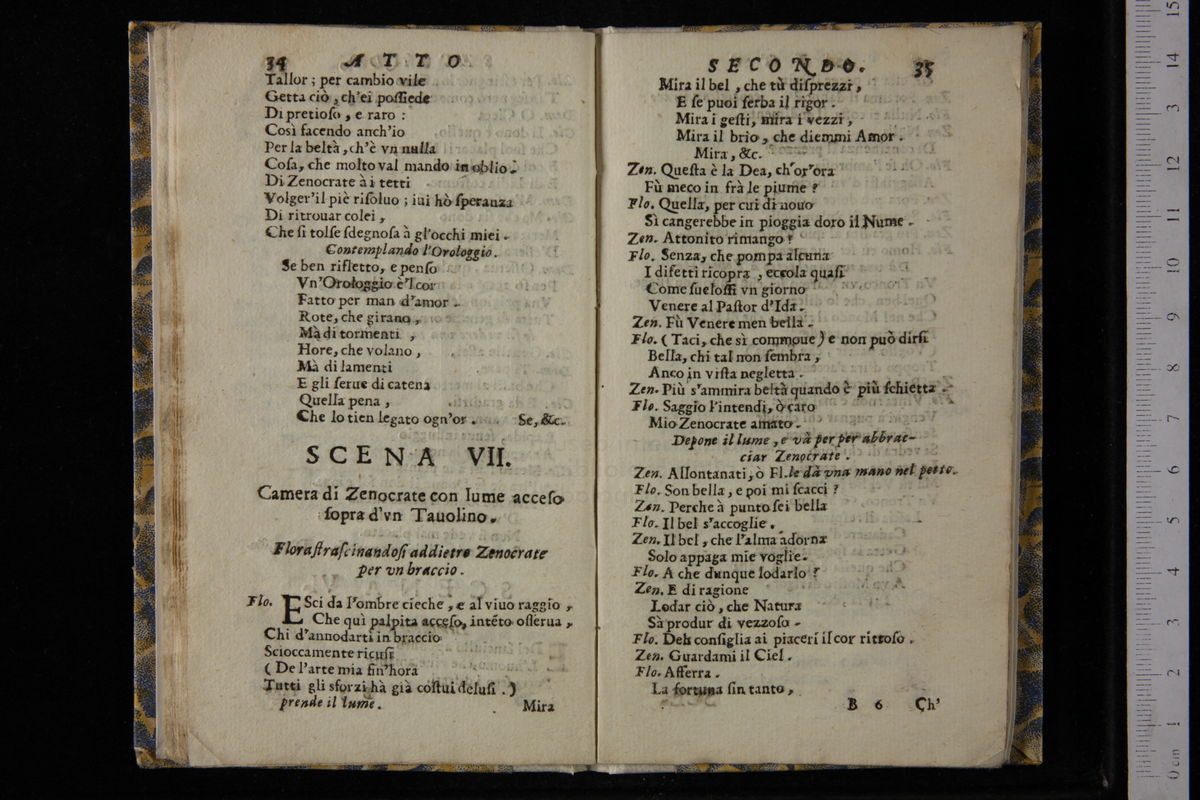 34 ATTO
Tallor ; per cambio vile
Getta ciò , ch'ei poſſiede
Di pretioſo , e raro :
Così facendo anch'io
Per la beltà , ch'è vn nulla
Coſa, che molto val mando in oblio.
Di Zenocrate à i tetti
Volger'il piè riſoluo ; iui hò ſperanza
Di ritrouar colei ,
Che ſi tolſe ſdegnoſa à gl'occhi miei .
Contemplando l'Orologgio .
Se ben rifletto, e penſo
Vn'Orologgio è'l cor
Fatto per man d'amor .
Rote, che girano ,
Mà di tormenti ,
Hore, che volano ,
Mà di lamenti
E gli ſerue di catena
Quella pena ,
Che lo tien legato ogn'or . Se, &c.
SCENA VII.
Camera di Zenocrate con lume acceſo
ſopra d'vn Tauolino.
Flora ſtraſcinandoſi addietro Zenocrate
per vn braccio .
Flo. ESci da l'ombre cieche , e al viuo raggio ,
Che quì palpita acceſo, intẽto oſſerua ,
Chi d'annodarti in braccio
Scioccamente ricuſi
( De l'arte mia fin'hora
Tutti gli sforzi hà già coſtui deluſi . )
prende il lume . Mira
SECONDO. 35
Mira il bel , che tù diſprezzi ,
E ſe puoi ſerba il rigor .
Mira i geſti, mira i vezzi ,
Mira il brio, che diemmi Amor .
Mira, &c.
Zen. Queſta è la Dea, ch'or'ora
Fù meco in frà le piume ?
Flo. Quella, per cui di nouo
Sì cangerebbe in pioggia doro il Nume .
Zen. Attonito rimango ?
Flo. Senza, che pompa alcuna
I difetti ricopra , eccola quaſi
Come ſueloſſi vn giorno
Venere al Paſtor d'Ida .
Zen. Fù Venere men bella .
Flo. ( Taci, che sì commoue ) e non può dirſi
Bella, chi tal non ſembra ,
Anco in viſta negletta .
Zen. Più s'ammira beltà quando è più ſchietta .
Flo. Saggio l'intendi, ò caro
Mio Zenocrate amato .
Depone il lume , e và per per abbrac-
ciar Zenocrate .
Zen. Allontanati, ò Fl. le dà vna mano nel petto.
Flo. Son bella, e poi mi ſcacci ?
Zen. Perche à punto ſei bella
Flo. Il bel s'accoglie .
Zen. Il bel , che l'alma adorna
Solo appaga mie voglie .
Flo. A che dunque lodarlo ?
Zen. E di ragione
Lodar ciò, che Natura
Sà produr di vezzoſo .
Flo. Deh conſiglia ai piaceri il cor ritroſo .
Zen. Guardami il Ciel .
Flo. Afferra .
La fortuna ſin tanto ,
B 6 Ch'